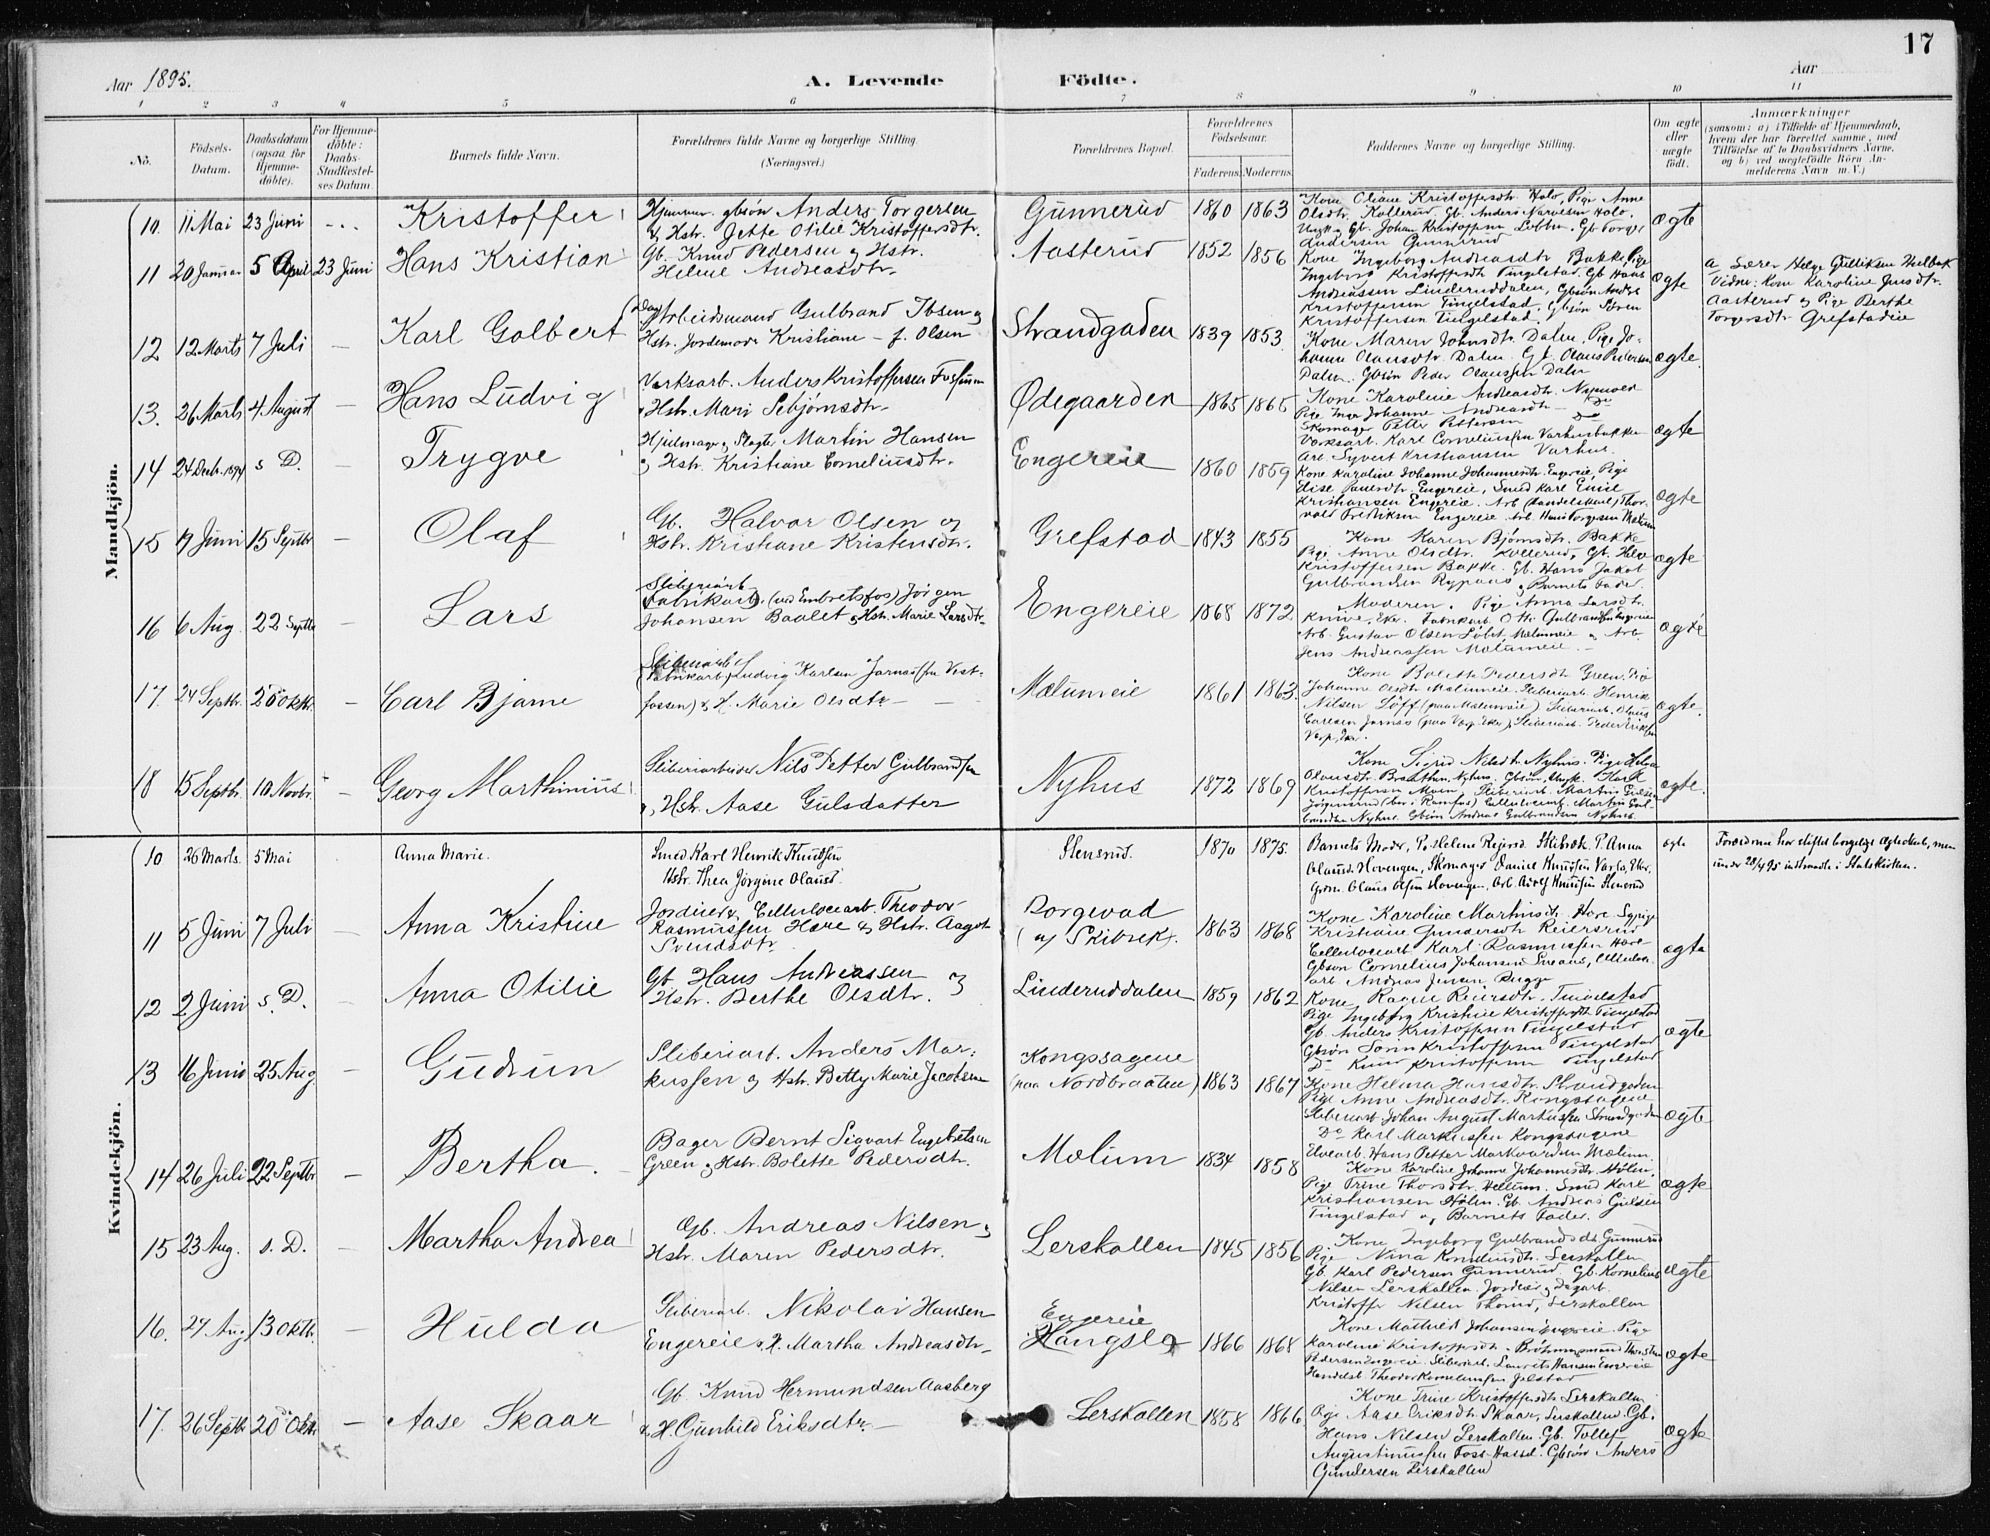 17
Aar 1895.
A. Levende Födte.
Aar
1 2 3 4 5 6 7 8 9 10 11
No.
Födsels-Datum.
Daabsdatum (ogsaa for Hjemme-döbte).
For Hjemme-döbte: Daabs-Stadfæstel-ses Datum.
Barnets fulde Navn.
Forældrenes fulde Navne og borgerlige Stilling.
(Næringsvei.)
Forældrenes Bopæl.
Forældrenes Födselsaar.
Faderens. Moderens.
Faddernes Navne og borgerlige Stilling.
Om ægte eller uægte födt.
Anmærkninger
(saasom: a) i Tilfælde af Hjemmedaab,
hvem der har forrettet samme, med
Tilföielse af to Daabsvidners Navne,
og b) ved uægtefödte Börn An-
melderens Navn m. V.)
Mandkjön.
10. 11 Mai 23 Juni Kristoffer
gbsön Anders Torgersen
& Hstr. Jette Otilie Kristoffersdtr.
Gunnerud 1860 1863
Kone Oliane Kristoffersdtr. Holo, Pige Anne
Olsdtr. Kollerud. Gb. Anders Narvesen Holo.
Ungk. Gb. Johan Kristoffersen
Andersen Gunnerud
ægte
11 20 Januar 5 April 23 Juni Hans Kristian
Gb. Knud Pedersen & Hstr.
Helene Andreasdtr.
Aasterud 1852 1856
Kone Ingeborg Andreasdtr Bakke, Pige
Ingeborg Kristoffersdtr Tingelstad. Gb Hans
Andreassen Linderuddalen, Gbsön Andrs
Kristoffersen Tingelstad, Gbsön Sören
Kristoffersen Tingelstad.
ægte
a Lærer Helge Gulliksen Hulbak
Vidne: Kone Karoline Jensdtr.
Aasterud og Pige Berthe
Torgersdtr Grefstadeie
12 12 Marts 7 Juli — Karl Golbert
(Dag) Arbeidsmand Gulbrand Ibsen og
Hstr. Jordemoder Kristiane — f. Olsen
Strandgaden 1839 1853
Kone Maren Johnsdtr. Dalen, Pige Jo-
hanne Olausdtr. Dalen. Gb. Olaus Pedersen
Dalen. Gbsön Peder Olaussen Dalen
ægte.
13. 26 Marts 4 August — Hans Ludvig
Værksarb. Anders Kristoffersen Fossum
& Hstr. Mari Sebjörnsdtr.
Ødegaarden 1865 1865
Kone Karoline Andreasdtr.
Pige Inger Johanne Andreasdtr — Do
Skomager Petter Pettersen Do
Værksarb. Karl Corneliussen Varhusbakken
Arb. Syvert Kristiansen Varhus.
ægte
14 24 Decbr. 1894 s D. — Trygve
Hjulmager og Slagter Martin Hansen
& Hstr. Kristiane Corneliusdtr.
Engereie 1860 1859
Kone Karoline Johanne Johannesdtr. Engereie, Pige
Elise Paulsdtr. Engereie, Smed Karl Emil
Kristiansen Engereie. Arb. (Handelskarl) Thor-
vald Fredriksen Engereie. Arb. Hans Torgersen Mælum
ægte
15 9 Juni 15 Septbr. — Olaf
Gb. Halvor Olsen og
Hstr. Kristiane Kristensdtr.
Grefstad 1843 1855
Kone Karen Bjørnsdtr. Bakke
Pige Anne Olsdtr. Kollerud, Gb. Helge
Kristoffersen Bakke. Gb. Hans Jakob
Gulbrandsen Rypaas & Barnets Fader.
ægte
16 6 Aug. 22 Septbr — Lars
Sliberiarb.
Fabrikarb. (ved Embretsfos) Jørgen
Johansen Baalet & Hstr. Marie Larsdtr.
Engereie 1868 1872
Moderen. Pige Anna Larsdtr.
Knive, Eker. Fabrikarb. Otto Gulbrandsen Engereie
Arb. Gustav Olsen Løbet, Mælumeie & Arb.
Jens Andreassen Mælumeie.
ægte
17. 24 Septbr. 20 Oktbr. — Carl Bjarne
Sliberiarb.
Fabrikarb. Ludvig Karlsen Jarnæs (fra Vest-
fossen) & H. Marie Olsdtr. —
Mælumeie 1861 1863.
Kone Bolette Pedersdtr Green, Pige
Johanne Olsdtr Mælumeie. Sliberiarb. Henrik
Nilsen Løff (paa Mælumeie) Sliberiarb. Olaus
Carlsen Jarnæs (paa Varp. Eker), Sliberiarb. Peder Eriksen
Varp, Eker.
ægte.
18 15 Septbr. 10 Novbr. — Georg Marthinius
Sliberiarbeider Nils Petter Gulbrandsen
& Hstr. Aase Gulsdatter
Nyhus 1872 1869
Kone Sigrid Nilsdtr Nyhus. Pige Helene
Olausdtr. Braathen, Nyhus. Gbsön, Ungk.
Kristoffersen Moen, Sliberiarb. Martin Gulsen
Jörgensrud (bor i Ramfos) Cellulosearb. Martin Gul-
brandsen Nyhus. Gbsön Andreas Gulbrandsen Nyhus.
ægte.
Kvindekjön.
10 26 Marts. 5 Mai Anna Marie.
Smed Karl Henrik Knudsen
Hstr. Thea Jörgine Olausd.
Stensrud. 1870 1875.
Barnets Moder, P. Helene Skibræk. P. Anna
Olausd. Hovengen, Skomager Daniel Knudsen Varlo, Eker,
Grdm. Olaus Olsen Hovengen, Arb. Adolf Knudsen Stensrud
ægte
Forældrene har stiftet borgerligt Ægteskab, men
under 28/4 95 indtraadte i Statskirken.
11 5 Juni 7 Juli — Anna Kristine
Jordeier & Cellulosearb. Theodor
Rasmussen Hære & Hstr. Aagot
Svendsdtr.
Borgevad
(af Skibrek). 1863 1868
Kone Karoline Martinsdtr. Hære. Sypige
Kristiane Gundersdtr Reiersrud
Cellulosearb Karl Rasmussen Hære
Gbsøn Cornelius Johansen, Cellulose-
arb. Andreas Jensen Rugge
ægte
12 2 Juni s. D. — Anna Otilie
Gb. Hans Andreassen &
Hstr. Berthe Olsdtr.
Linderuddalen 1859 1862
Kone Ragne Reiersdtr. Tingelstad
Pige Ingeborg Kristine Kristoffersdtr Tingelstad
Gb. Anders Kristoffersen Tingelstad
Gbsön Sören Kristoffersen Tingelstad
Do Knud Kristoffersen Tingelstad
ægte
13 16 Juni 25 Aug — Gudrun
Sliberiarb. Anders Mar-
kussen & Hstr. Betty Marie Jacobsen
Kongssagene
(paa Nordbraaten) 1863 1867
Kone Helena Hansdtr. Strandgaden
Pige Anne Andreasdtr. Kongssagene
Sliberiarb. Johan August Markussen Strandgaden
Do Karl Markussen Kongssagene
Elvearb. Hans Petter Markvardsen Mælum.
ægte
14 26 Juli 22 Septbr — Bertha.
Bager Bernt Sigvart Engebretsen
Green & Hstr. Bolette Pedersdtr.
Mælum 1834 1858
Kone Karoline Johanne Johannesdtr. Hølen,
Pige Trine Thorsdtr. Hellum. Smed Karl
Kristiansen Hølen. Gb. Andreas Gulsen
Tingelstad & Barnets Fader.
ægte
15 23 Aug. s. D. — Martha Andrea
Gb. Andreas Nilsen &
Hstr. Maren Pedersdtr.
Lerskallen 1845 1856
Kone Ingeborg Gulbrandsdtr. Gunnerud
Pige Nina Korneliusdtr. Lerskallen
Gb. Karl Pedersen Gunnerud, Gb. Kornelius
Nilsen Lerskallen. Jordeier & Dagarb.
Kristoffer Nilsen Thorud, Lerskallen
ægte
16. 27 Aug. 13 Oktbr. — Hulda
Sliberiarb. Nikolai Hansen
Engereie & H. Martha Andreasdtr.
Engereie
Haugslo 1866 1868
Kone Mathild Johansen Engereie. Pige
Karoline Kristoffersdtr. Thorsten
Pedersen Engereie. Sliberiarb. Laurits Hansen Engereie
Handelsb. Theodor Korneliussen Jelstad
ægte
17. 26 Septbr 20 Oktbr. — Aase Skaar
Gb. Knud Hermundsen Aasberg
& H. Gunhild Eriksdtr. —
Lerskallen 1858 1866
Kone Trine Kristoffersdtr. Lerskallen
Pige Aase Eriksdtr. Skaar, Lerskallen. Gb.
Hans Nilsen Lerskallen. Gb. Tollef
Augustinussen Foss-Hassel. Gbsön Anders
Gundersen Lerskallen
ægte